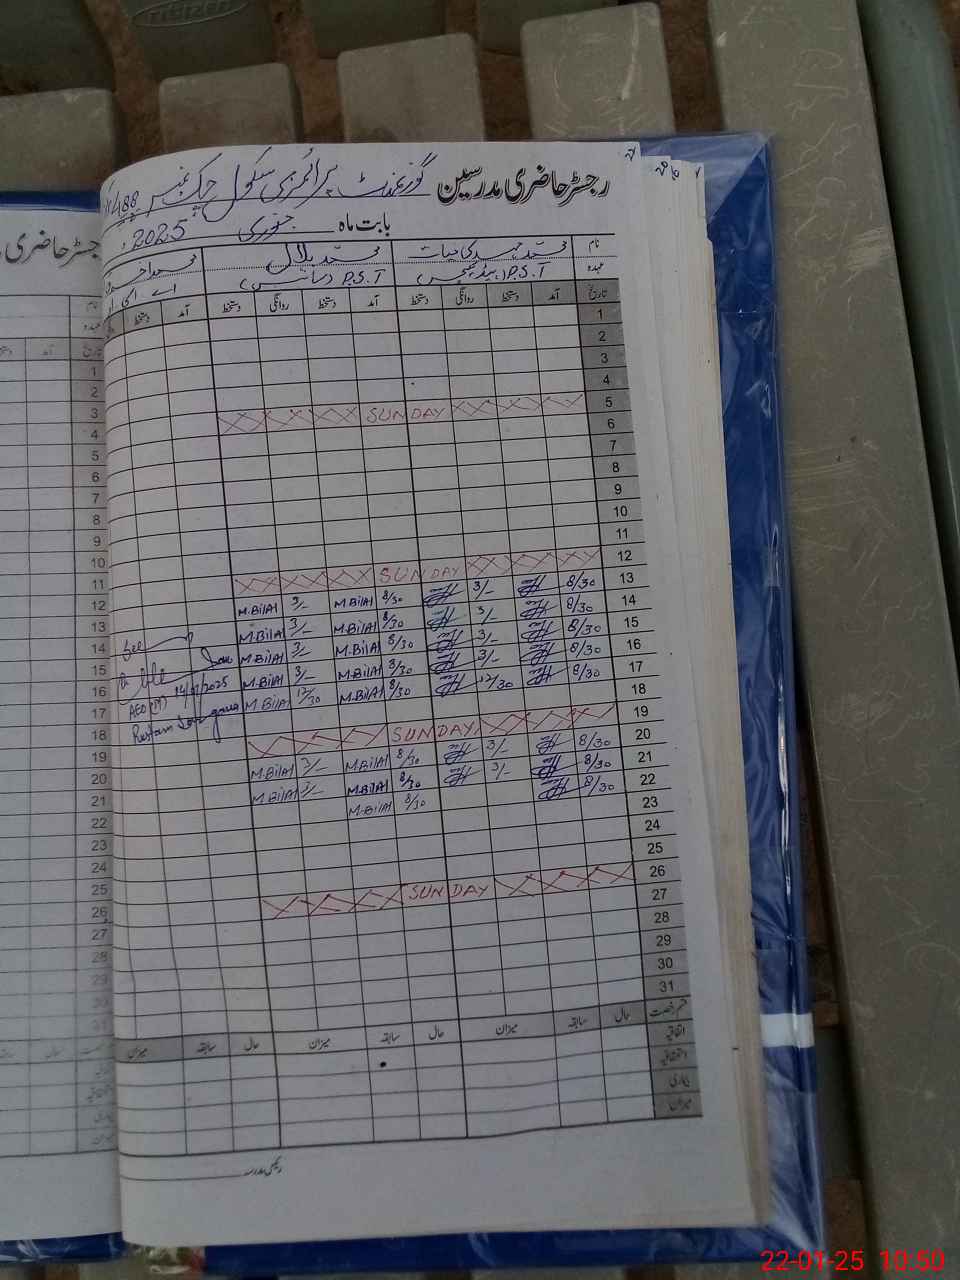 رجسٹر حاضری مدرسین گورنمنٹ پرائمری سکول چک نمبر 488
بابت ماہ جنوری 2025ء
نام محمد بلال محمد
عہدہ P.S.T (ہیڈ ٹیچر) P.S.T (سائنس)
تاریخ آمد دستخط روانگی دستخط آمد دستخط روانگی دستخط آمد دستخط
1
2
3
4
5 SUNDAY
6
7
8
9
10
11
12 SUNDAY
13 8/30 3/- 8/30 M.Bilal 3/- M.Bilal
14 8/30 3/- 8/30 M.Bilal 3/- M.Bilal
15 8/30 3/- 8/30 M.Bilal 3/- M.Bilal
16 8/30 3/- 8/30 M.Bilal 3/- M.Bilal
17 8/30 12/30 8/30 M.Bilal 12/30 M.Bilal
18
19 SUNDAY
20 8/30 3/- 8/30 M.Bilal 3/- M.Bilal
21 8/30 3/- 8/30 M.Bilal 3/- M.Bilal
22 8/30 8/30 M.Bilal
23
24
25
26 SUNDAY
27
28
29
30
31
قسم رخصت حال سابقہ میزان حال سابقہ میزان حال سابقہ میزان
اتفاقیہ
استحقاقیہ
بیماری
میزان
رجسٹر حاضری
نام
عہدہ
تاریخ آمد
1
2
3
4
5
6
7
8
9
10
11
12
13
14
15
16
17
18
19
20
21
22
23
24
25
26
27
28
29
30
31
22-01-25 10:50